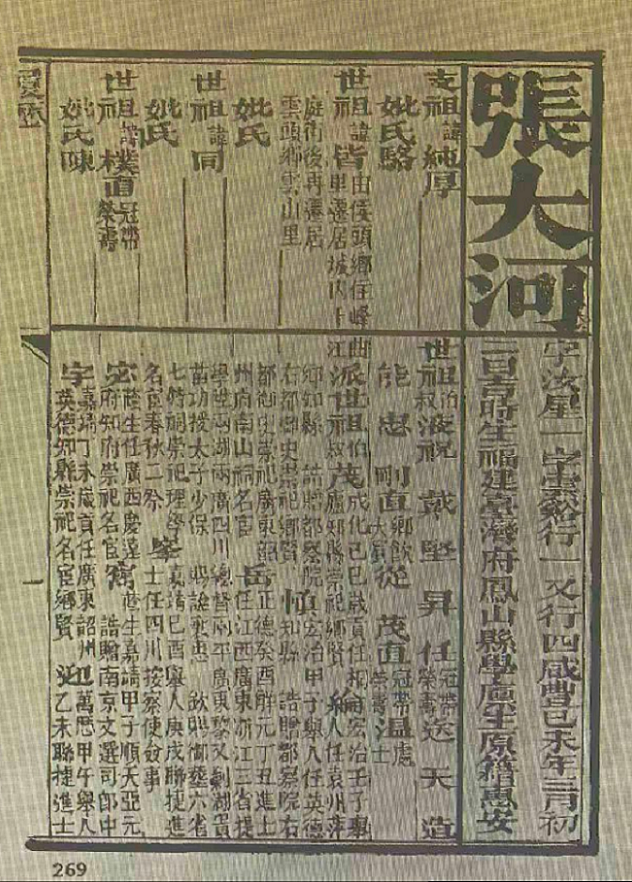 張大河
字汝星一字雲紹行一又行四咸豐己未年二月初
二日吉時生福建臺灣府鳳山縣學廩生原籍惠安
支祖諱純厚
妣氏駱
世祖諱皆由侯頭鄉住峰曲
甲遷居城內十江
庭衙後再遷居
雲頭鄉雲山里
妣氏
世祖諱同
妣氏
世祖諱樸直冠帶
榮壽
妣氏陳
世祖伯叔液祝戴堅昇任冠帶榮壽送天造
能忠剛直鄉飲大賓從茂直冠帶榮壽溫處士
派世祖伯叔茂成化己巳歲貢任桐
廬知縣崇祀鄉賢綸宏治壬子舉
人任袁州萍
鄉知縣 誥贈都察院
右都御史崇祀鄉賢慎宏治甲子舉人任英德
知縣 誥贈都察院右
都御史崇祀廣東韶
州府南山祠名宦岳正德癸酉解元丁丑進士
任江西廣東浙江三省提
學兩湖兩廣四川總督兩平廣東黎又剿湖貴
苗功授太子少保 賜諡襄惠 欽賜御葬六省
七特祠崇祀理學
名宦春秋二祭峯嘉靖己酉舉人庚戌聯捷進
士任四川按察使僉事
宓蔭生任廣西慶遠
府知府崇祀名宦寯蔭生嘉靖甲子順天亞元
誥贈南京文選司郎中
宇嘉靖丁未歲貢任廣東韶州
英德知縣崇祀名宦鄉賢迎萬曆甲午舉人
乙未聯捷進士
一
269